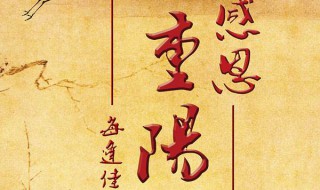 感恩
重陽
每逢佳